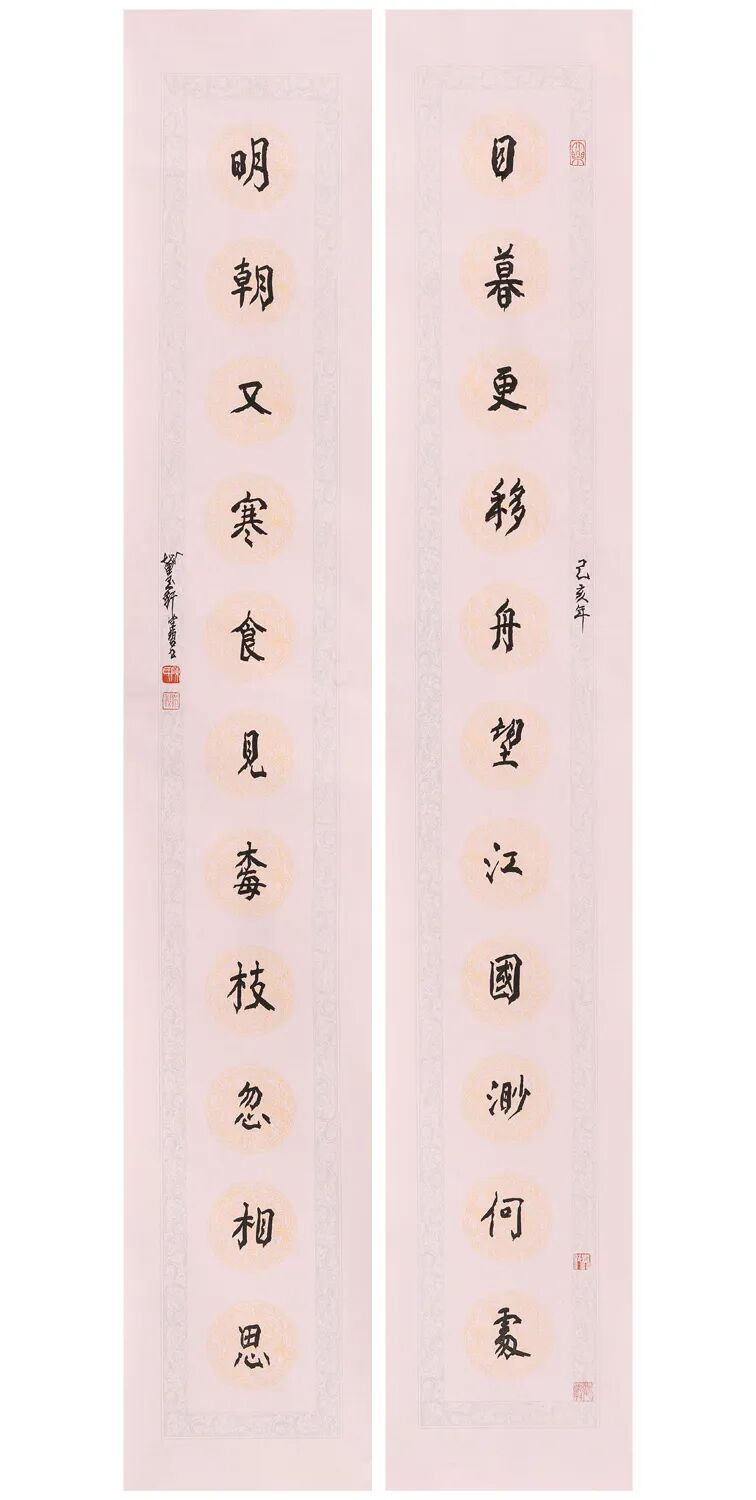 己亥年
目暮更移舟望江國渺何處
明朝又寒食見梅枝忽相思